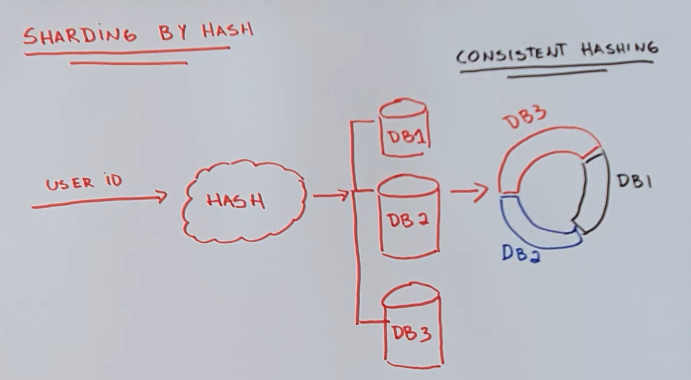 SHARDING BY HASH
CONSISTENT HASHING
USER ID
HASH
DB1
DB2
DB3
DB3
DB1
DB2